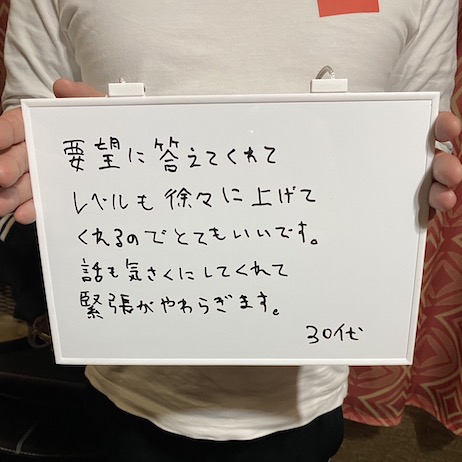 要望に答えてくれて
レベルも徐々に上げて
くれるのでとてもいいです。
話も気さくにしてくれて
緊張がやわらぎます。
30代